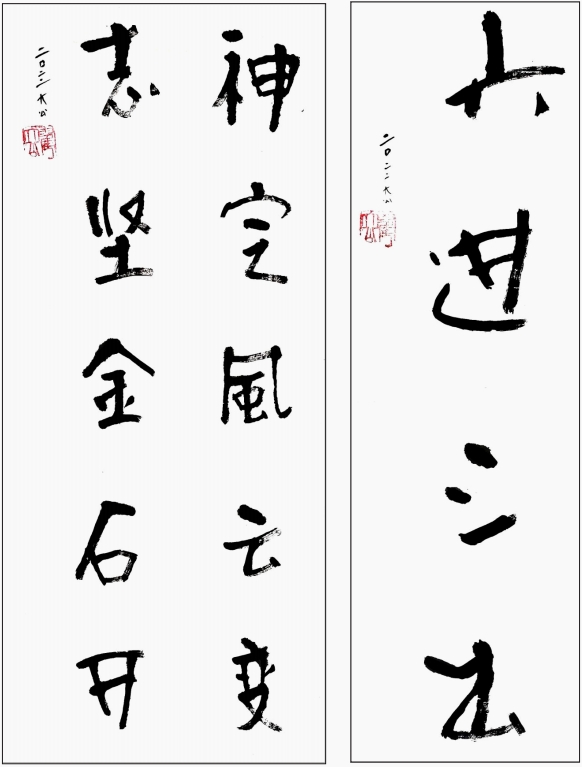 六进三出
二〇二二大公
神定風云变
志坚金石开
二〇二二大公